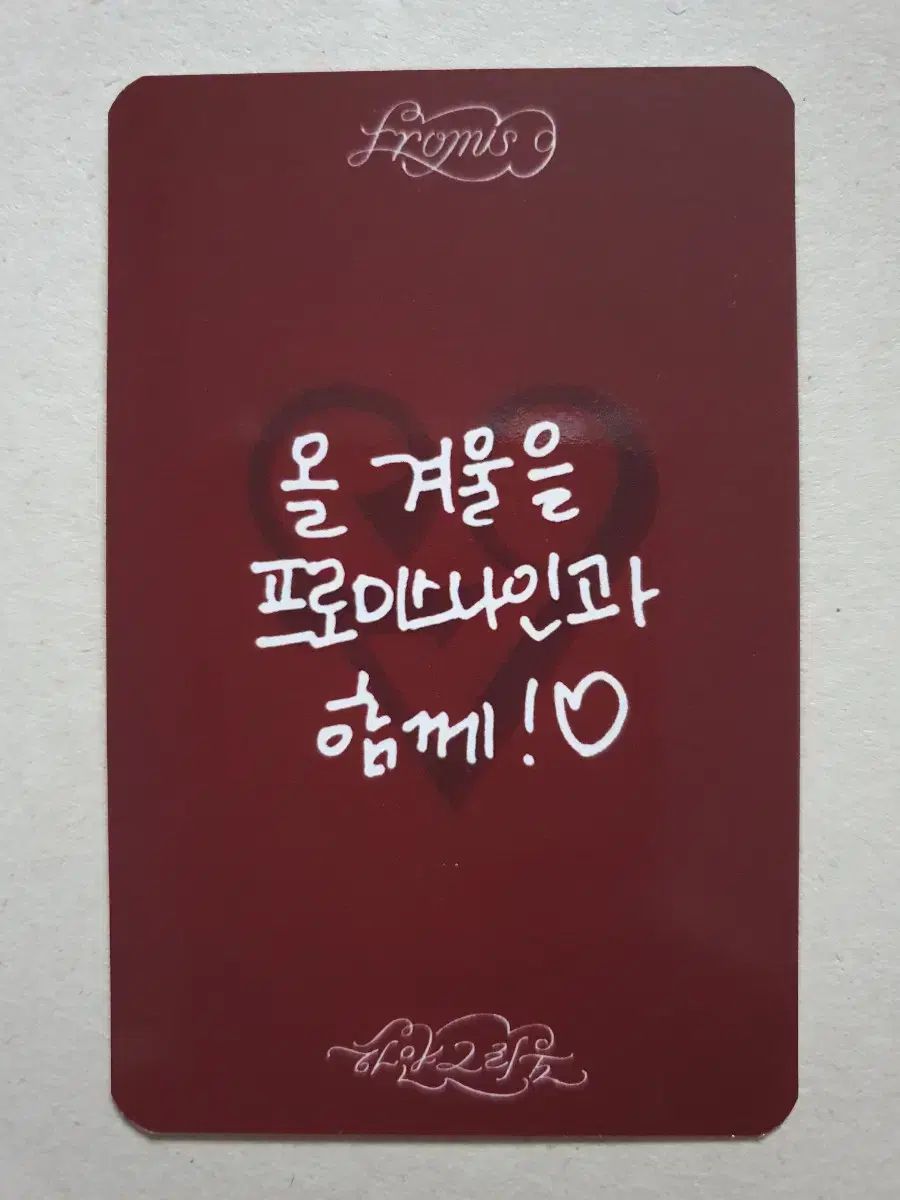 fromis_9
올 겨울을
프로미스나인과
함께!♡
하얀 그리움